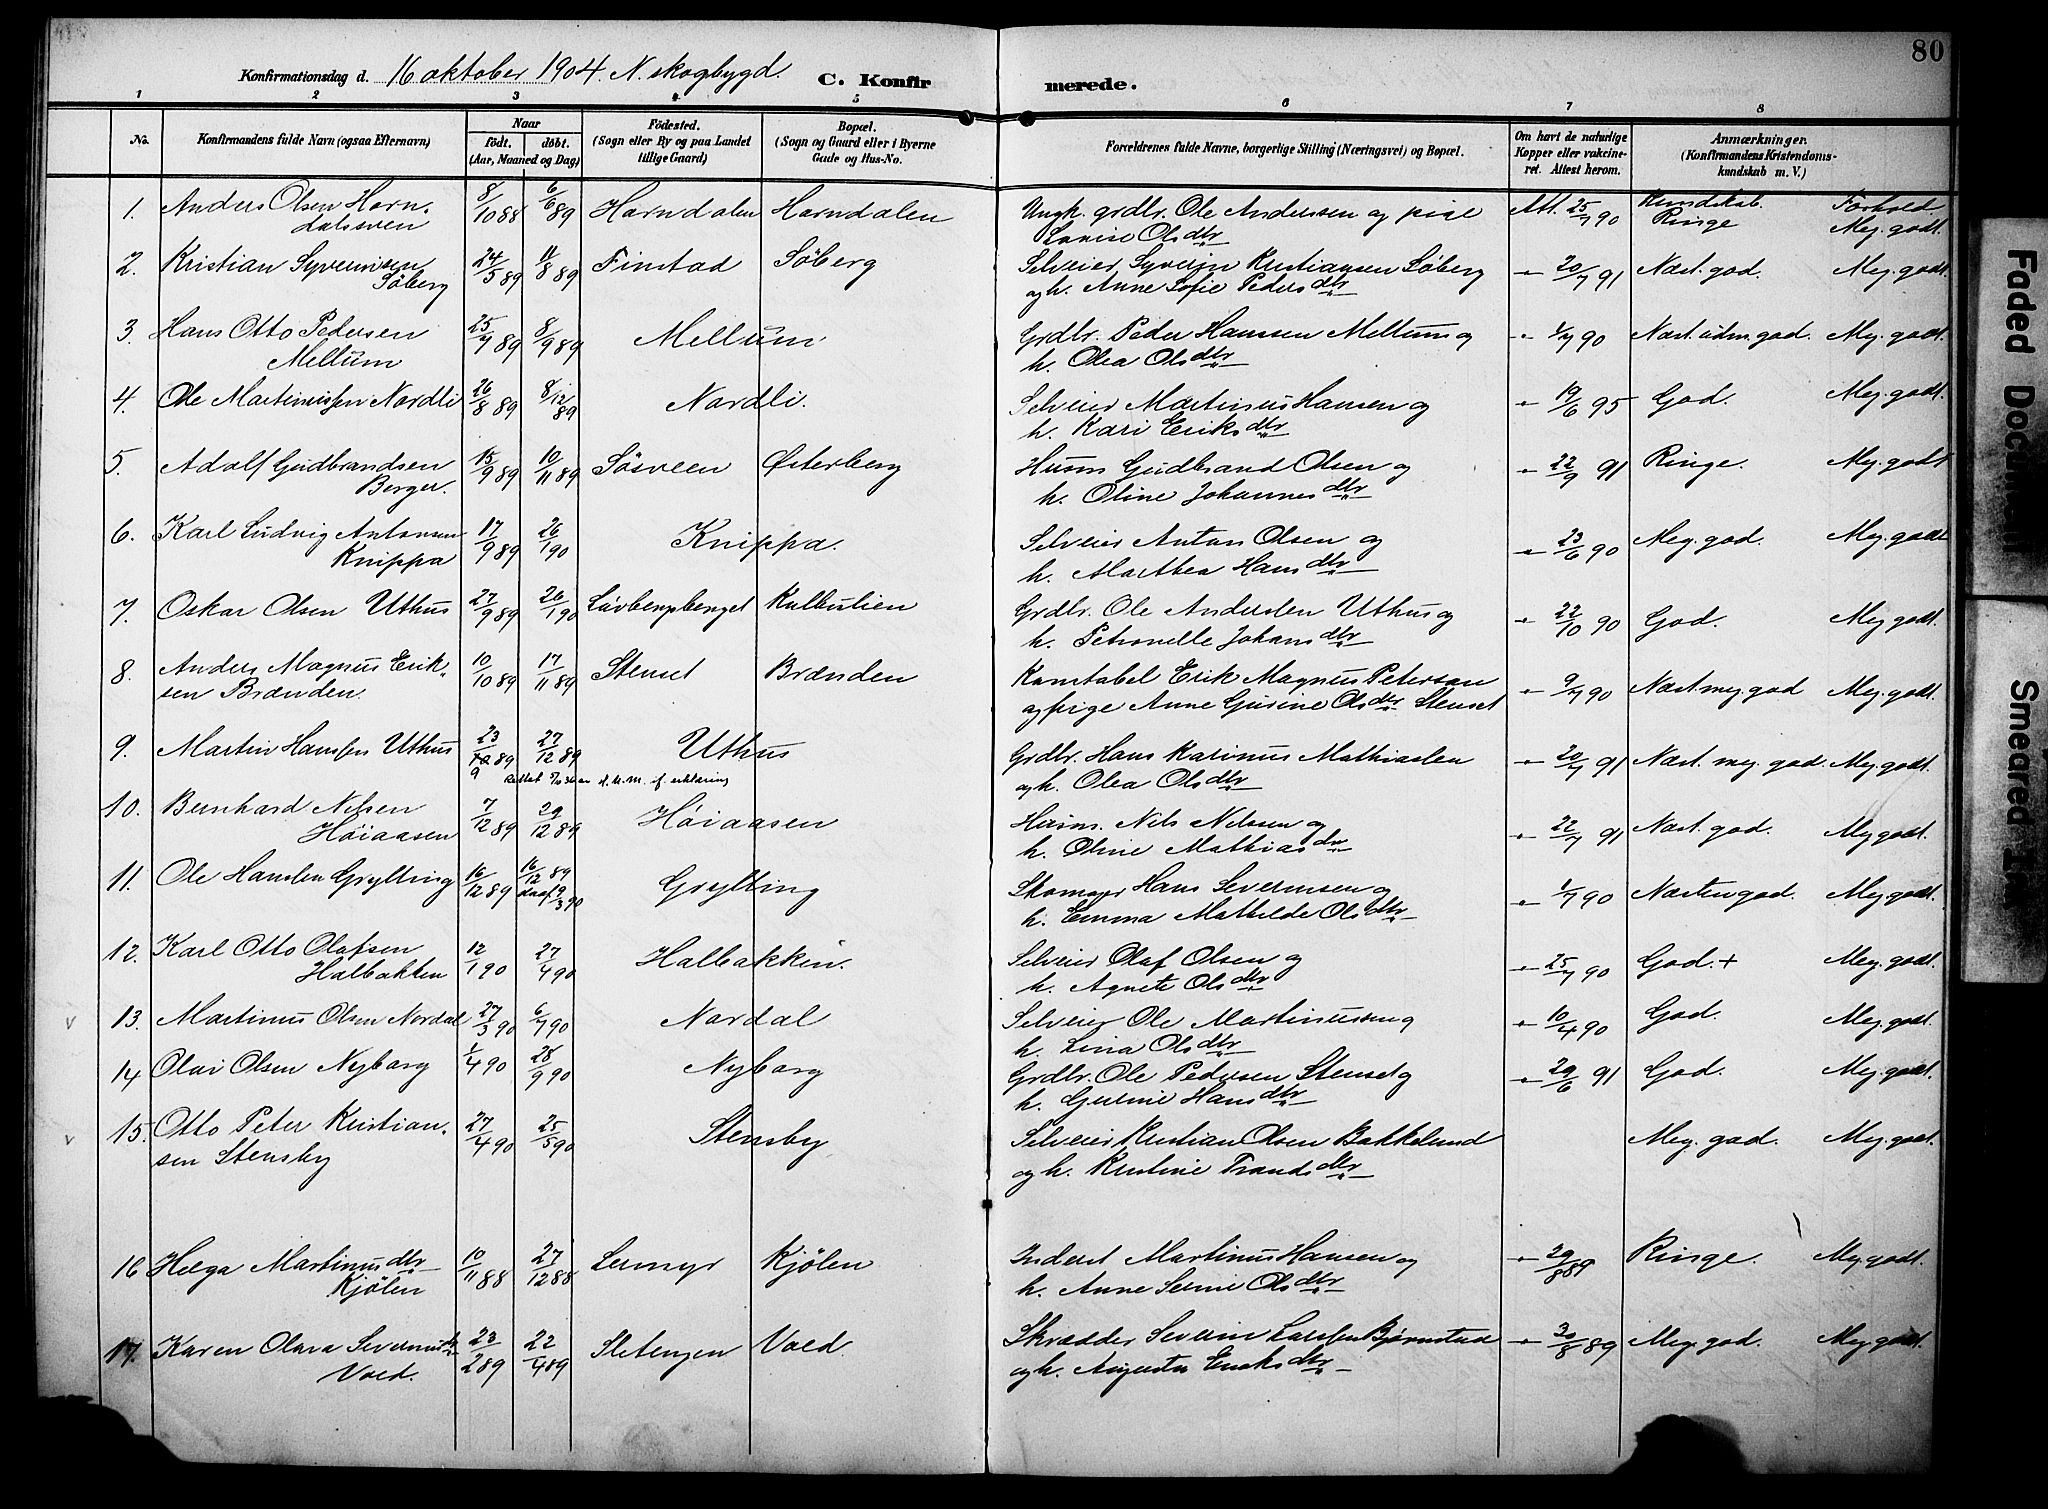 80
Konfirmationsdag d. 16 oktober 1904. N. skogbygd. C. Konfirmerede.
1 2 3 4 5 6 7 8
No. Konfirmandens fulde Navn (ogsaa Efternavn) Naar født. døbt. (Aar, Maaned og Dag) Fødested. (Sogn eller By og paa Landet tillige Gaard) Bopæl. (Sogn og Gaard eller i Byerne Gade og Hus-No. Forældrenes fulde Navne, borgerlige Stilling (Næringsvei) og Bopæl. Om havt de naturlige Kopper eller vakcineret. Attest herom. Anmærkninger. (Konfirmandens Kristendomskundskab m. V.)
Kundskab. Forhold.
1. Anders Olsen Horn- 8/10 88 6/6 89 Horndalen Horndalen Ungk. grdbr. Ole Andersen og pige Att. 25/7 90 Ringe Meg. godt.
dalssveen Lovise Olsdtr
2. Kristian Syverinsen 24/5 89 11/8 89 Finstad Söberg Selveier Syverin Kristiansen Söberg " 20/7 91 Næst. god. Meg. godt.
Söberg og h. Anne Sofie Pedersdtr
3. Hans Otto Pedersen 25/7 89 8/9 89 Mellum Grdbr. Peder Hanssen Mellum og " 1/7 90 Næst. udm. god. Meg. godt.
Mellum h. Olea Olsdtr
4. Ole Martinussen Nordli 26/8 89 8/12 89 Nordli. Selveier Martinus Hansen og " 19/6 95 God. Meg. godt.
h. Kari Eriksdtr
5. Adolf Gudbrandsen 15/9 89 10/11 89 Sösveen Østerberg Husm Gudbrand Olsen og " 22/9 91 Ringe. Meg. godt.
Berger. h. Oline Johannesdtr
6. Karl Ludvig Antonsen 17/9 89 26/1 90 Knippa. Selveier Anton Olsen og " 23/6 90 Meg. god. Meg. godt
Knippa h. Marthea Hansdtr
7. Oskar Olsen Uthus 27/9 89 26/1 90 Kulbulien Grdbr. Ole Andersen Uthus og " 22/10 90 God. Meg godt.
h. Petronelle Johansdtr
8. Anders Magnus Erik- 10/10 89 17/11 89 Stenset Brænden Konstabel Erik Magnus Peterson " 9/7 90 Næst. meg. god Meg. godt.
sen Brænden. og pige Anne Gurine Olsdtr Stenset
9. Martin Hanssen Uthus 23/10 89 27/12 89 Uthus Grdbr. Hans Karinus Mathiassen " 20/7 91 Næst. meg. god. Meg. godt.
9 Rettet og h. Olea Olsdtr
10. Bernhard Nilsen 7/12 89 29/12 89 Høiaasen Husm. Nils Nilssen og " 22/7 91 Næst. god. Meg godt.
Høiaasen h. Oline Mathiasdtr
11. Ole Hanssen Grylting 16/12 89 16/12 89 Grylting Skomager Hans Severinsen og " 1/7 90 Næsten god. Meg. godt.
9/3 90 h. Emma Mathilde Olsdtr
12. Karl Otto Olafsen 12/1 90 27/4 90 Halbakken. Selveier Olaf Olsen og " 25/7 90 God. + Meg. godt.
Halbakken h. Agnete Olsdtr
v 13. Martinus Olsen Nordal 27/3 90 6/7 90 Nordal Selveier Ole Martinussen og " 10/4 90 God. Meg. godt.
h. Lina Olsdtr
14 Olai Olsen Nyborg 1/4 90 28/9 90 Nyborg Grdbr. Ole Pedersen Stenset og " 29/6 91 God. Meg. godt.
h. Gurine Hansdtr
v 15. Otto Peter Kristian- 27/4 90 25/5 90 Stensby Selveier Kristian Olsen Bakkelund Meg. god. Meg. godt.
sen Stensby og h. Kristine Trondsdtr
16 Helga Martinusdtr 10/11 88 27/12 88 Lermyr Kjölen Inderst Martinus Hansen og " 29/8 89 Ringe. Meg. godt.
Kjölen h. Anne Serine Olsdtr
17. Karen Olava Severinsdtr 23/2 89 22/4 89 Sletengen Vold. Skrædder Severin Larsen Bjørnstad " 30/8 89 Meg. god. Meg. godt
Vold. og h. Augusta Eriksdtr
Faded Document
Smeared Ink